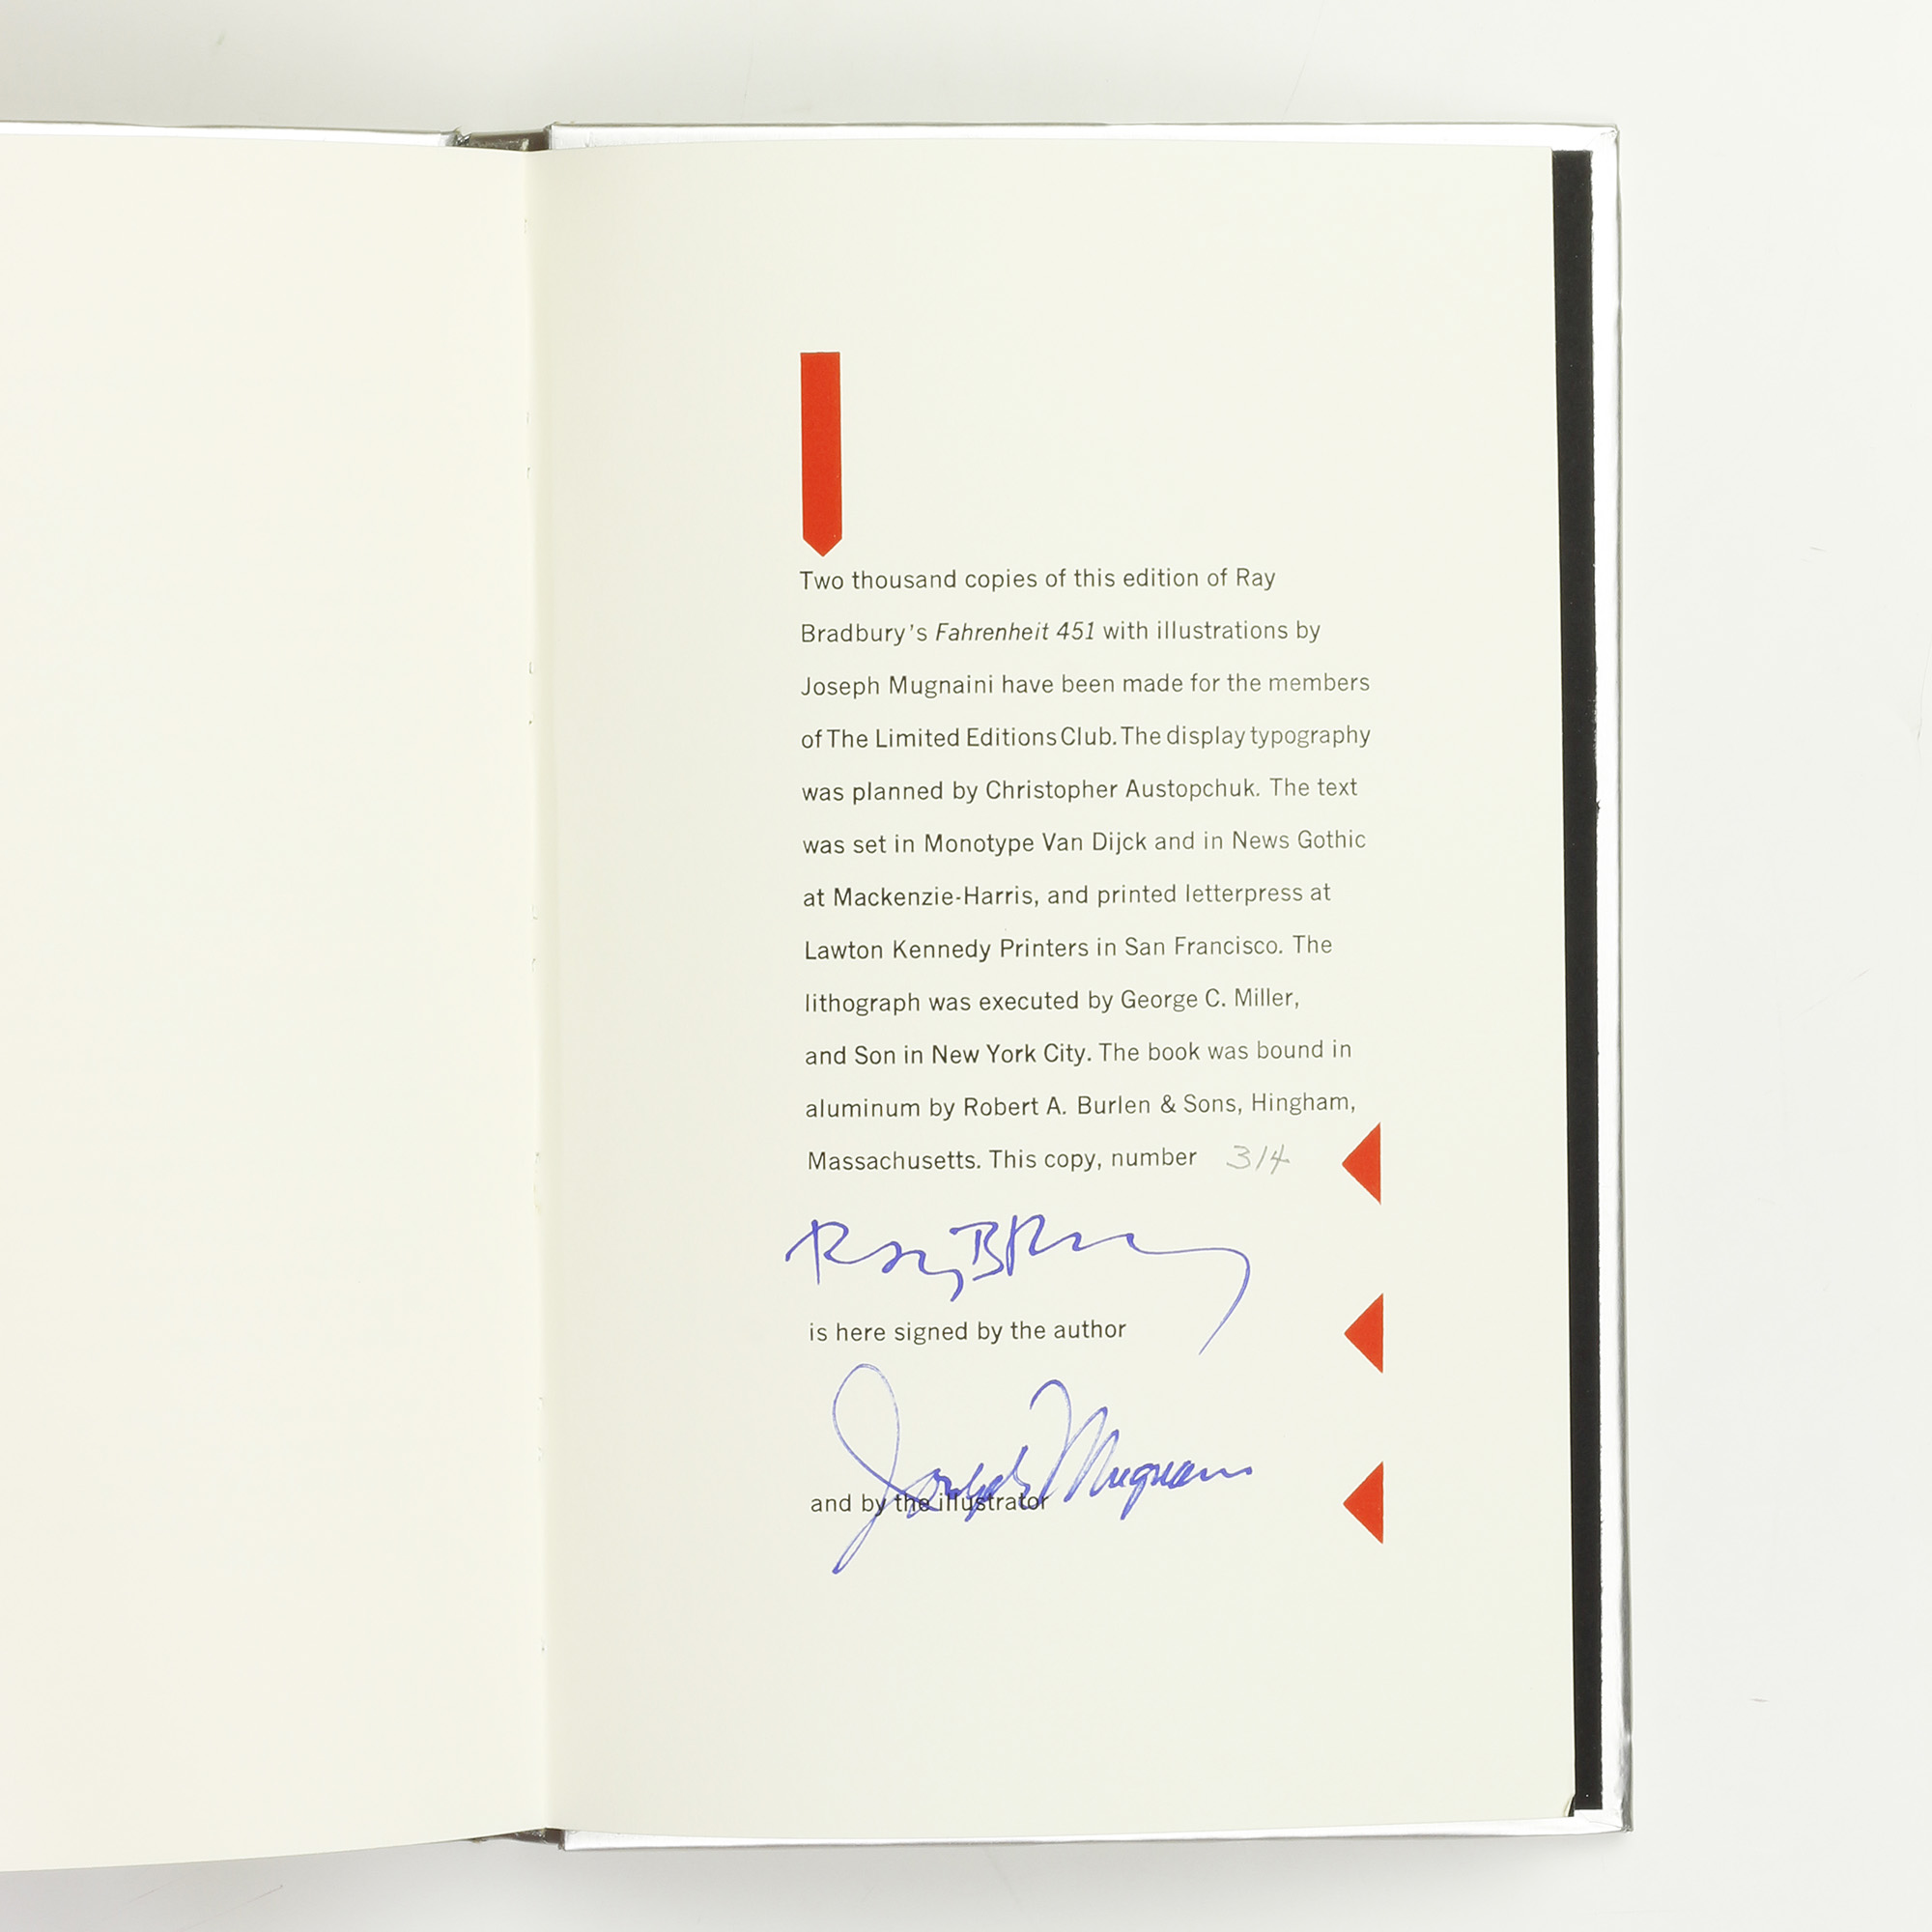 Two thousand copies of this edition of Ray
Bradbury's Fahrenheit 451 with illustrations by
Joseph Mugnaini have been made for the members
of The Limited Editions Club. The display typography
was planned by Christopher Austopchuk. The text
was set in Monotype Van Dijck and in News Gothic
at Mackenzie-Harris, and printed letterpress at
Lawton Kennedy Printers in San Francisco. The
lithograph was executed by George C. Miller,
and Son in New York City. The book was bound in
aluminum by Robert A. Burlen & Sons, Hingham,
Massachusetts. This copy, number 314
Ray Bradbury
is here signed by the author
Joseph Mugnaini
and by the illustrator